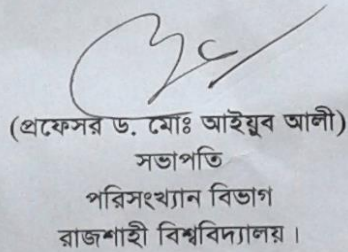 (প্রফেসর ড. মোঃ আইয়ুব আলী)
সভাপতি
পরিসংখ্যান বিভাগ
রাজশাহী বিশ্ববিদ্যালয়।